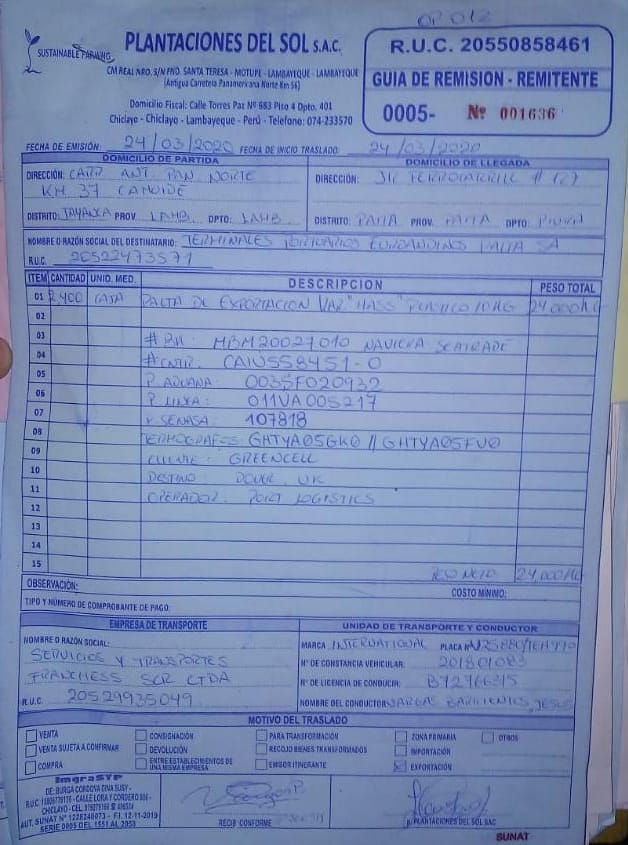 OP 012
SUSTAINABLE FARMING
PLANTACIONES DEL SOL S.A.C.
CM REAL NRO. S/N FND. SANTA TERESA - MOTUPE - LAMBAYEQUE - LAMBAYEQUE
(Antigua Carretera Panamericana Norte Km 56)
Domicilio Fiscal: Calle Torres Paz Nº 683 Piso 4 Dpto. 401
Chiclayo - Chiclayo - Lambayeque - Perú - Telefono: 074-233570
R.U.C. 20550858461
GUIA DE REMISION - REMITENTE
0005- Nº 001636
FECHA DE EMISIÓN: 24/03/2020 FECHA DE INICIO TRASLADO: 24/03/2020
DOMICILIO DE PARTIDA
DIRECCIÓN: CARR ANT. PAN. NORTE
KM 37
DISTRITO: JAYANCA PROV. LAMB. DPTO: LAMB.
DOMICILIO DE LLEGADA
DIRECCIÓN: JR FERROCARRIL # 127
DISTRITO: PAITA PROV. PAITA DPTO: PIURA
NOMBRE O RAZÓN SOCIAL DEL DESTINATARIO: TERMINALES PORTUARIOS EUROANDINOS PAITA SA
R.U.C. 20522473571
ITEM CANTIDAD UNID. MED. DESCRIPCION PESO TOTAL
01 2,400 CAJA PALTA DE EXPORTACION VAR "HASS" PLASTICO 10 KG 24,000 KG
02
03 # BK: MBM20027010 NAVIERA SEATRADE
04 # CNTR: CAIU558451-0
05 P. ADUANA: 0035F020932
06 P. LINEA: 011VA005217
07 P. SENASA: 107818
08 TERMOGRAFOS: GHTYA05GK0 // GHTYA05FV0
09 CLIENTE: GREENCELL
10 DESTINO: DOVER, UK
11 OPERADOR: PORT LOGISTICS
12
13
14
15 PESO NETO 24,000 KG
OBSERVACIÓN: COSTO MÍNIMO:
TIPO Y NÚMERO DE COMPROBANTE DE PAGO:
EMPRESA DE TRANSPORTE
NOMBRE O RAZÓN SOCIAL:
SERVICIOS Y TRANSPORTES
FRANCHESS SCR LTDA
R.U.C. 20529935049
UNIDAD DE TRANSPORTE Y CONDUCTOR
MARCA INTERNATIONAL PLACA Nº
Nº DE CONSTANCIA VEHICULAR: 201801083
Nº DE LICENCIA DE CONDUCIR: B72766315
NOMBRE DEL CONDUCTOR: VARGAS BARRIENTOS, JESUS
MOTIVO DEL TRASLADO
VENTA
VENTA SUJETA A CONFIRMAR
COMPRA
CONSIGNACIÓN
DEVOLUCIÓN
ENTRE ESTABLECIMIENTOS DE
UNA MISMA EMPRESA
PARA TRANSFORMACIÓN
RECOJO BIENES TRANSFORMADOS
EMISOR ITINERANTE
ZONA PRIMARIA
IMPORTACIÓN
EXPORTACIÓN
OTROS
ImgraSYP
DE: BURGA CORDOVA DINA SUSY -
CALLE LORA Y CORDERO
CHICLAYO - CEL.
AUT. SUNAT Nº 1228240073 - F.I. 12-11-2019
SERIE 0005 DEL 1551 AL 2050
RECIBI CONFORME
p. PLANTACIONES DEL SOL SAC
SUNAT